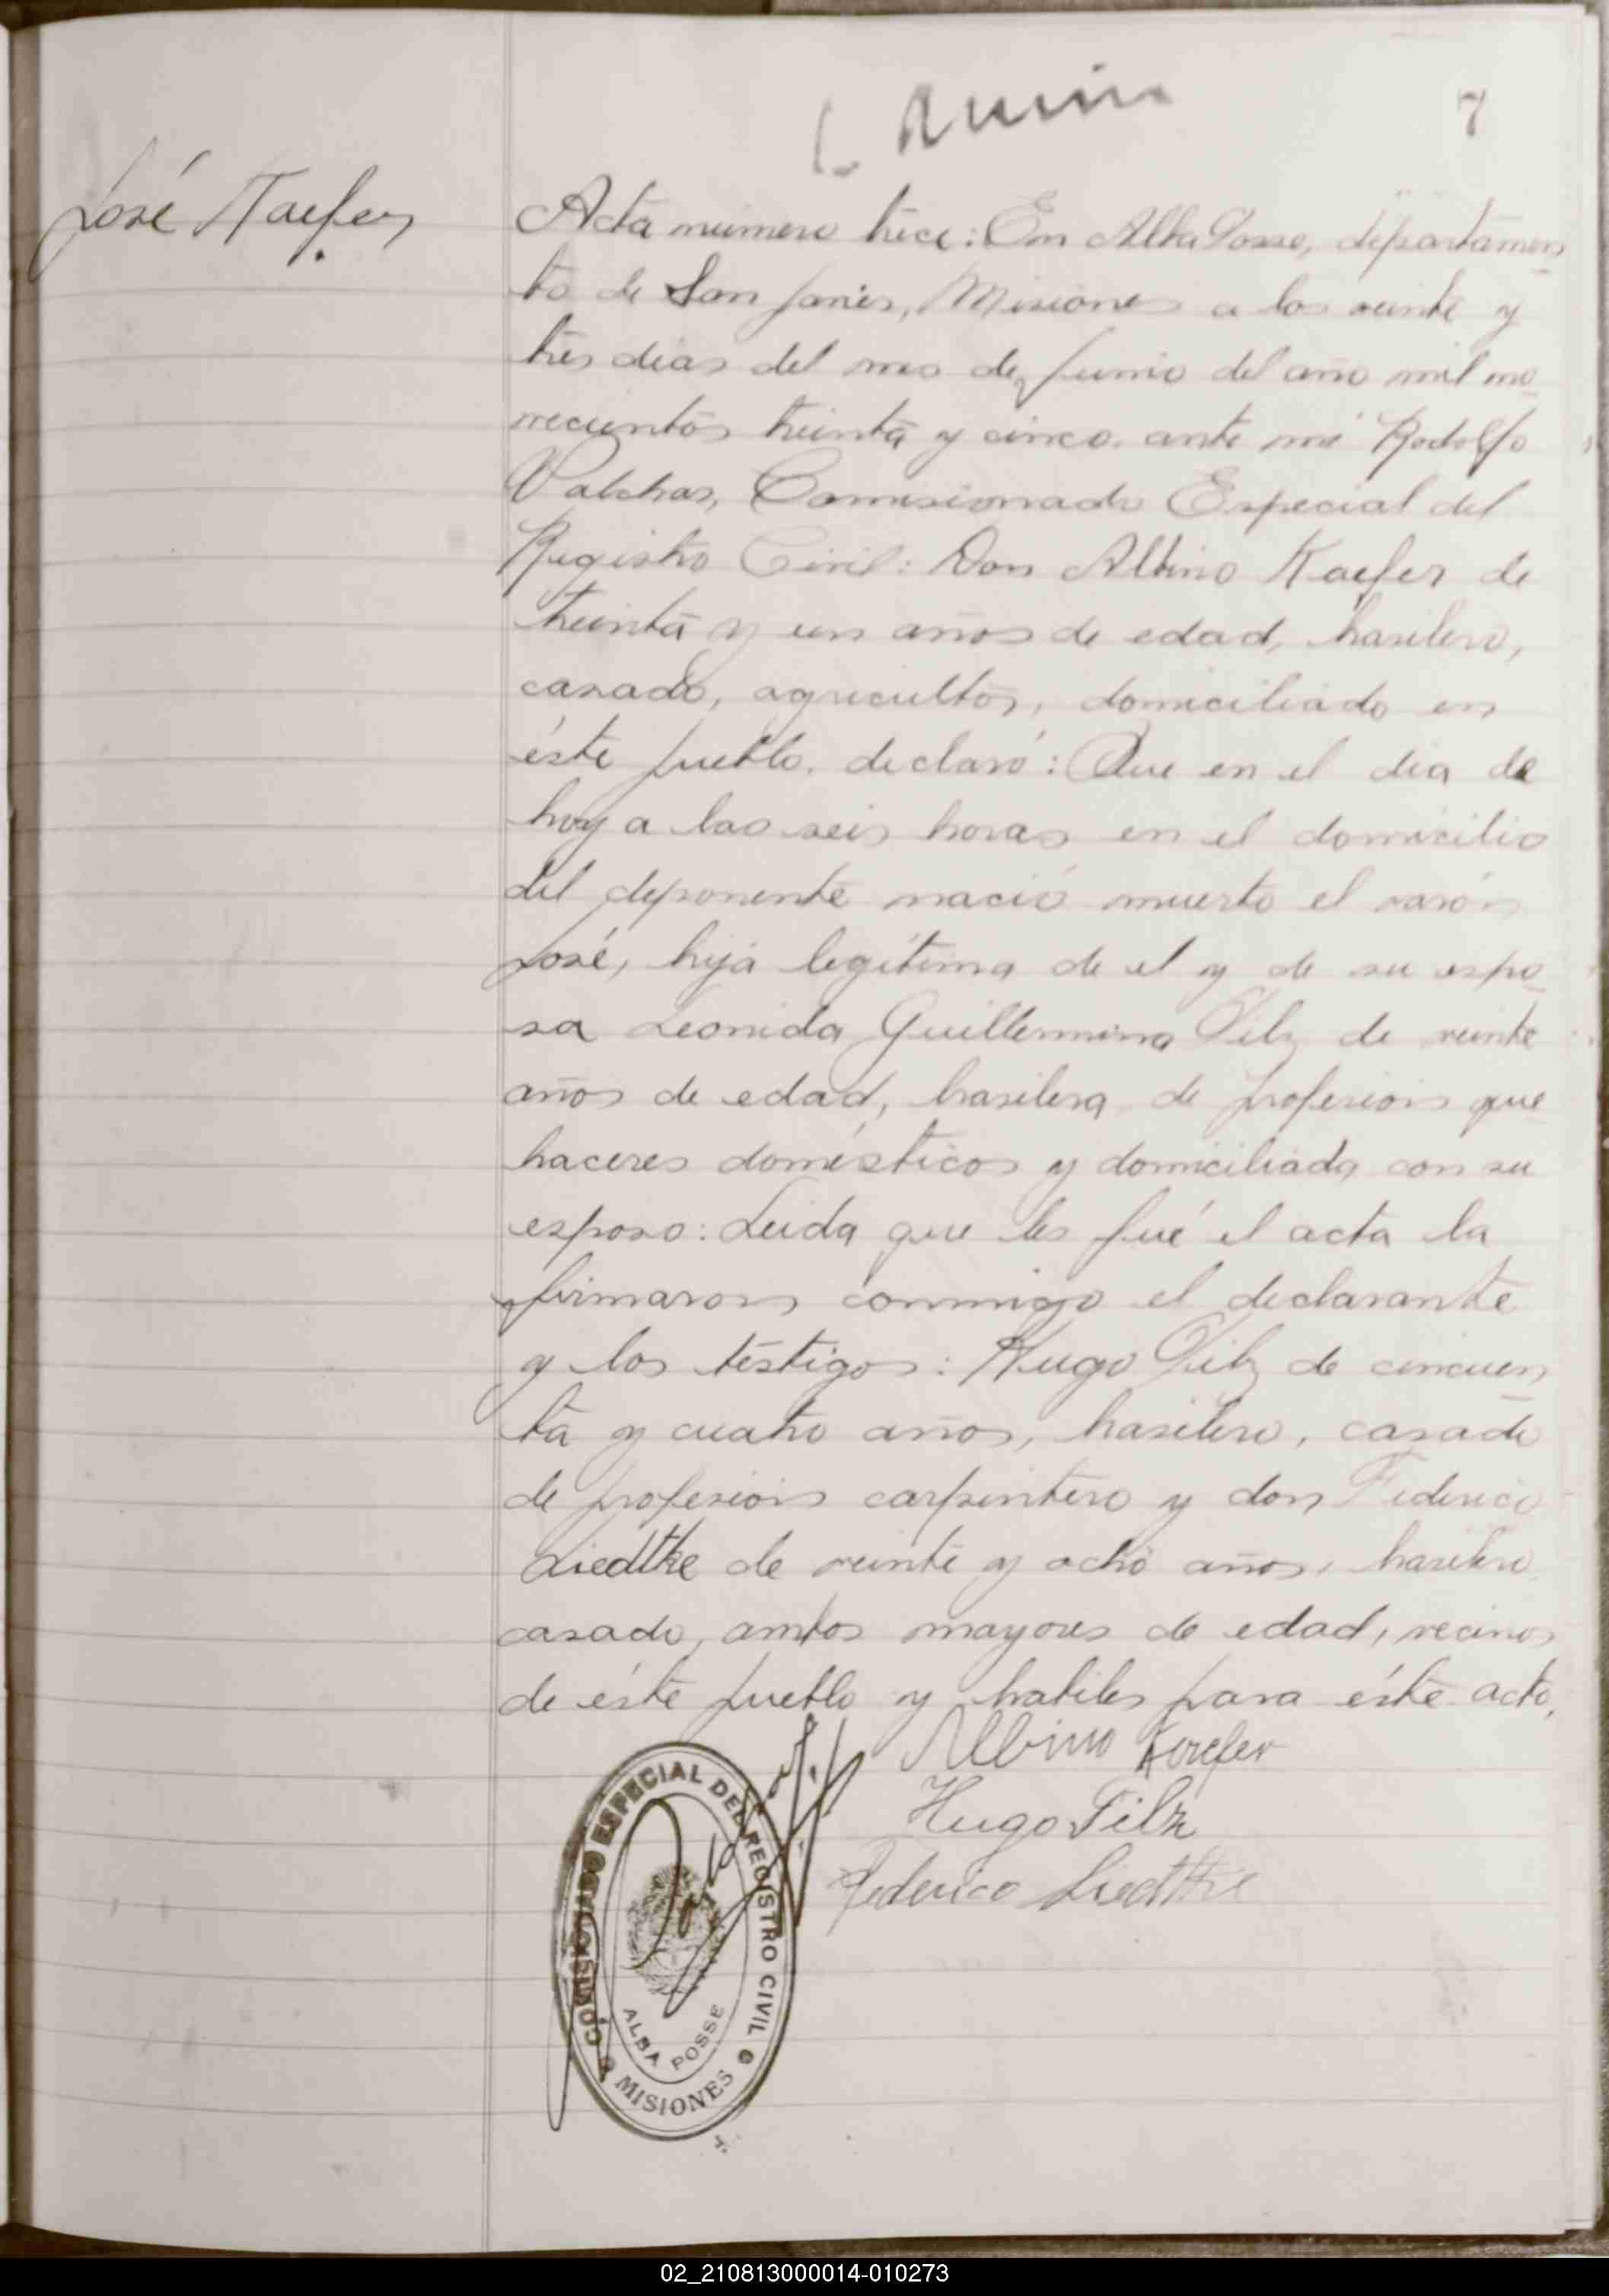 7
José Kaefer
Acta número trece: En Alba Posse, departamen
to de San Javier, Misiones a los veinte y
tres dias del mes de Junio del año mil no
vecientos treinta y cinco. ante mí Rodolfo
Comisionado Especial del
Registro Civil: Don Albino Kaefer de
treinta y un años de edad, brasilero,
casado, agricultor, domiciliado en
éste pueblo. declaró: Que en el dia de
hoy a las seis horas en el domicilio
del deponente nació muerto el varón
José, hija legítima de el y de su espo
sa Leonida Guillermina Pilz de veinte
años de edad, brasilera, de profesion que
haceres domésticos y domiciliada con su
esposo: Leida que les fué el acta la
firmaron conmigo el declarante
y los testigos: Hugo Pilz de cincuen
ta y cuatro años, brasilero, casado
de profesion carpintero y don Federico
Liedtke de veinte y ocho años, brasilero
casado, ambos mayores de edad, vecinos
de éste pueblo y habiles para éste acto.
Albino Kaefer
Hugo Pilz
Federico Liedtke
COMISIONADO ESPECIAL DEL REGISTRO CIVIL
ALBA POSSE
MISIONES
02_210813000014-010273